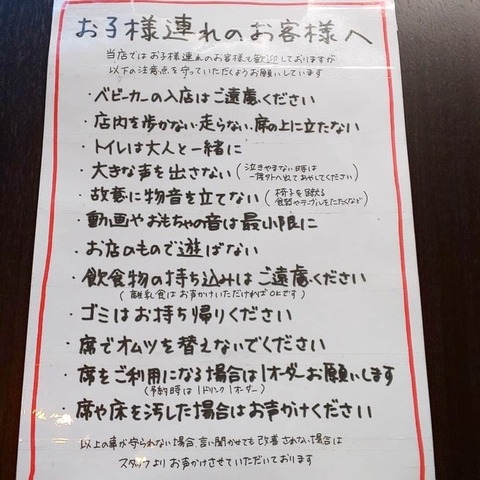 お子様連れのお客様へ
当店ではお子様連れのお客様も歓迎しておりますが
以下の注意点を守っていただくようお願いしています
・ベビーカーの入店はご遠慮ください
・店内を歩かない・走らない・席の上に立たない
・トイレは大人と一緒に
・大きな声を出さない(泣きやまない時は
一度外へ出てあやしてください)
・故意に物音を立てない(椅子を蹴る
食器やテーブルをたたくなど)
・動画やおもちゃの音は最小限に
・お店のもので遊ばない
・飲食物の持ち込みはご遠慮ください
(離乳食はお声かけいただければOKです)
・ゴミはお持ち帰りください
・席でオムツを替えないでください
・席をご利用になる場合は1オーダーお願いします
(予約時は1ドリンク1オーダー)
・席や床を汚した場合はお声がけください
以上の事が守られない場合、言い聞かせても改善されない場合は
スタッフよりお声かけさせていただいております